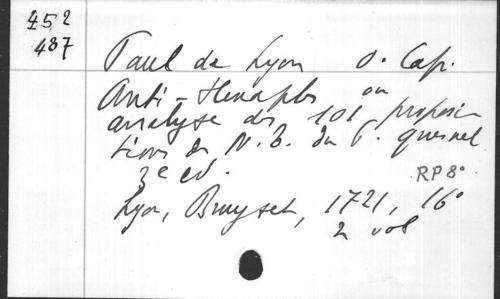 452
487
Paul de Lyon O. Cap.
Anti-Hexaples ou
analyse des 101 proposi
tions du N.T. du P. Quesnel
3e ed. RP 8°
Lyon, Bruyset, 1721, 16°
2 vol